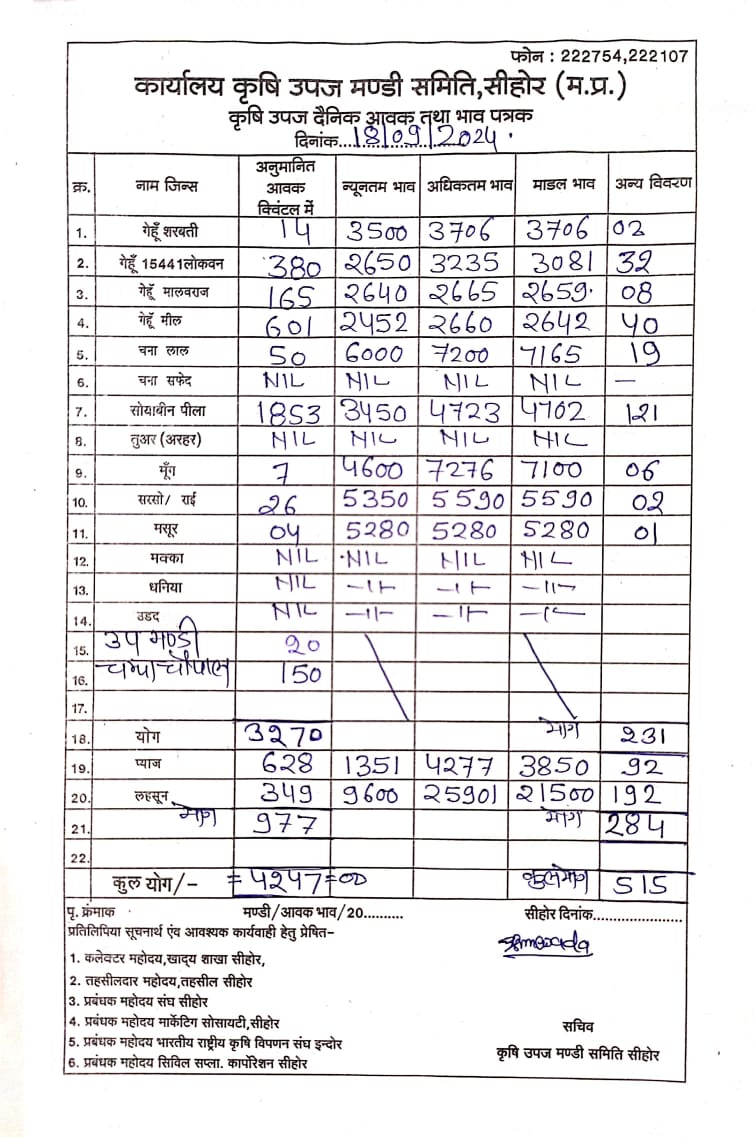 फोन : 222754,222107
कार्यालय कृषि उपज मण्डी समिति,सीहोर (म.प्र.)
कृषि उपज दैनिक आवक तथा भाव पत्रक
दिनांक...18/09/2024.
क्र. नाम जिन्स अनुमानित आवक क्विंटल में न्यूनतम भाव अधिकतम भाव माडल भाव अन्य विवरण
1. गेहूँ शरबती 14 3500 3706 3706 02
2. गेहूँ 15441लोकवन 380 2650 3235 3081 32
3. गेहूँ मालवराज 165 2640 2665 2659. 08
4. गेहूँ मील 601 2452 2660 2642 40
5. चना लाल 50 6000 7200 7165 19
6. चना सफेद NIL NIL NIL NIL —
7. सोयाबीन पीला 1853 3450 4723 4702 121
8. तुअर (अरहर) NIL NIL NIL NIL
9. मूँग 7 4600 7276 7100 06
10. सरसो/ राई 26 5350 5590 5590 02
11. मसूर 04 5280 5280 5280 01
12. मक्का NIL NIL NIL NIL
13. धनिया NIL –11– –11– –11–
14. उडद NIL –11– –11– –11–
15. उप मण्डी 20
16. चना चौपाल 150
17.
18. योग 3270 योग 231
19. प्याज 628 1351 4277 3850 92
20. लहसून 349 9600 25901 21500 192
21. योग 977 योग 284
22.
कुल योग/- =4247=00 कुल योग 515
पृ. क्रंमाक मण्डी/आवक भाव/20.......... सीहोर दिनांक......................
प्रतिलिपिया सूचनार्थ एंव आवश्यक कार्यवाही हेतु प्रेषित–
1. कलेक्टर महोदय,खाद्य शाखा सीहोर,
2. तहसीलदार महोदय,तहसील सीहोर
3. प्रबंधक महोदय संघ सीहोर
4. प्रबंधक महोदय मार्केटिग सोसायटी,सीहोर
5. प्रबंधक महोदय भारतीय राष्ट्रीय कृषि विपणन संघ इन्दोर
6. प्रबंधक महोदय सिविल सप्ला. कार्पोरेशन सीहोर
सचिव
कृषि उपज मण्डी समिति सीहोर